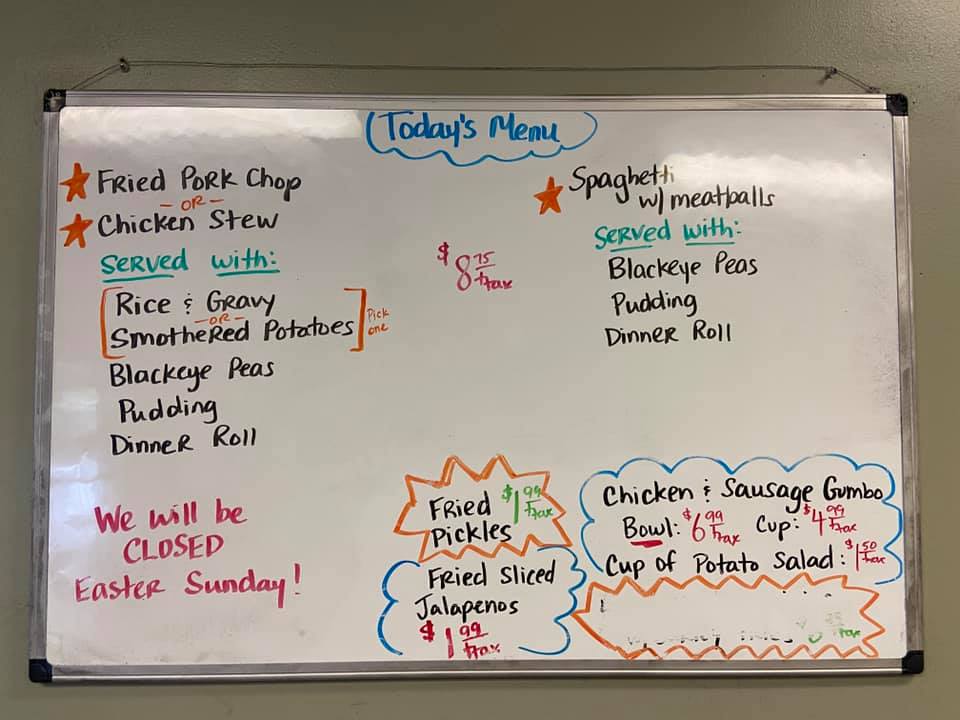 Today's Menu
Fried Pork Chop
- OR -
Chicken Stew
Served with:
Rice & Gravy
- OR -
Smothered Potatoes
Pick
one
Blackeye Peas
Pudding
Dinner Roll
$8.75 +tax
Spaghetti
w/ meatballs
Served with:
Blackeye Peas
Pudding
Dinner Roll
We will be
CLOSED
Easter Sunday!
Fried $1.99 +tax
Pickles
Fried Sliced
Jalapenos
$1.99 +tax
Chicken & Sausage Gumbo
Bowl: $6.99 +tax Cup: $4.99 +tax
Cup of Potato Salad: $1.50 +tax
tax